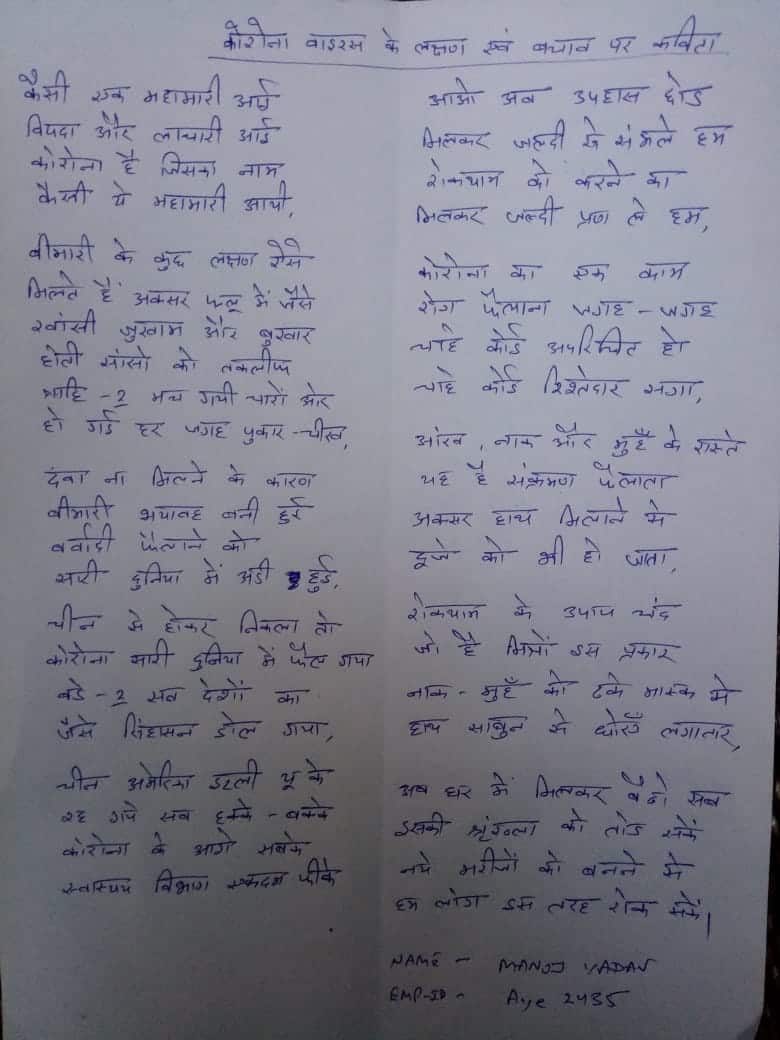 कोरोना वाइरस के लक्षण एवं बचाव पर कविता
कैसी एक महामारी आई
विपदा और लाचारी आई
कोरोना है जिसका नाम
कैसी ये महामारी आयी,
बीमारी के कुछ लक्षण ऐसे
मिलते हैं अक्सर फ्लू में जैसे
खांसी जुखाम और बुखार
होती सांसो को तकलीफ
त्राहि -2 मच गयी चारों ओर
हो गई हर जगह पुकार-चीख,
दवा ना मिलने के कारण
बीमारी भयावह बनी हुई
बर्वादी फैलाने को
सारी दुनिया में अडी हुई,
चीन से होकर निकला तो
कोरोना सारी दुनिया में फैल गया
बडे -2 सब देशों का
जैसे सिंहासन डोल गया,
चीन अमेरिका इटली यू के
रह गये सब हक्के - बक्के
कोरोना के आगे सबके
स्वास्थ्य विभाग एकदम फीके
आओ अब उपहास छोड
मिलकर जल्दी से संभले हम
रोकथाम को करने का
मिलकर जल्दी प्रण ले हम,
कोरोना का एक काम
रोग फैलाना जगह - जगह
चाहे कोई अपरिचित हो
चाहे कोई रिश्तेदार सगा,
आंख, नाक और मुहँ के रास्ते
यह है संक्रमण फैलाता
अक्सर हाथ मिलाने से
दूजे को भी हो जाता,
रोकथाम के उपाय चंद
जो है मित्रों इस प्रकार
नाक - मुहँ को ढके मास्क से
हाथ साबुन से धोएँ लगातार,
अब घर में मिलकर बैठो सब
इसकी श्रृंखला को तोड सकें
नये मरीजों को बनने से
हम लोग इस तरह रोक सकें।
NAME - MANOJ YADAV
EMP-ID - Aye 2435